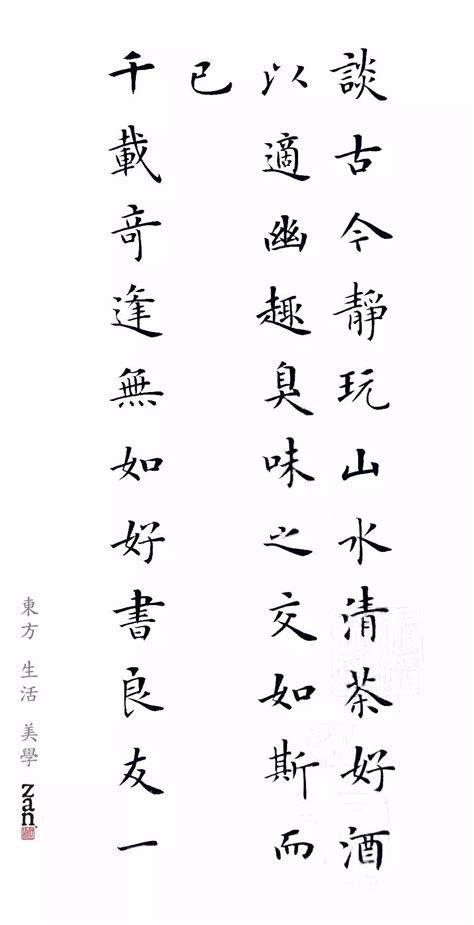 談古今靜玩山水清茶好酒
以適幽趣臭味之交如斯而
已
千載竒逢無如好書良友一
東方 生活 美學
zan